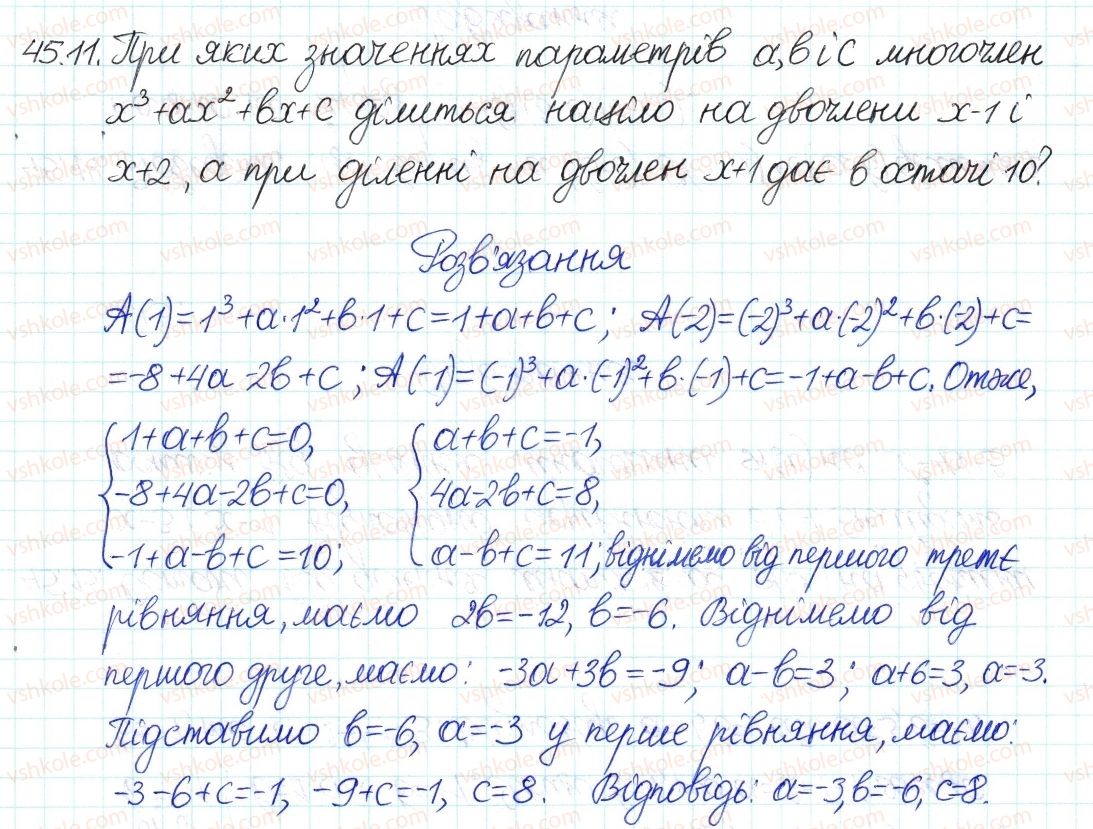 45.11. При яких значеннях параметрів а, в і с многочлен
x³+ax²+вx+c ділиться націло на двочлени x-1 і
x+2, а при діленні на двочлен x+1 дає в остачі 10?
Розв'язання
A(1)=1³+a·1²+в·1+c=1+a+в+c; A(-2)=(-2)³+a·(-2)²+в·(-2)+c=
=-8+4a-2в+c; A(-1)=(-1)³+a·(-1)²+в·(-1)+c=-1+a-в+c. Отже,
{1+a+в+c=0, {a+в+c=-1,
-8+4a-2в+c=0, 4a-2в+c=8,
-1+a-в+c=10; a-в+c=11; віднімемо від першого третє
рівняння, маємо 2в=-12, в=-6. Віднімемо від
першого друге, маємо: -3a+3в=-9; a-в=3; a+6=3, a=-3.
Підставимо в=-6, a=-3 у перше рівняння, маємо:
-3-6+c=-1, -9+c=-1, c=8. Відповідь: a=-3, в=-6, c=8.